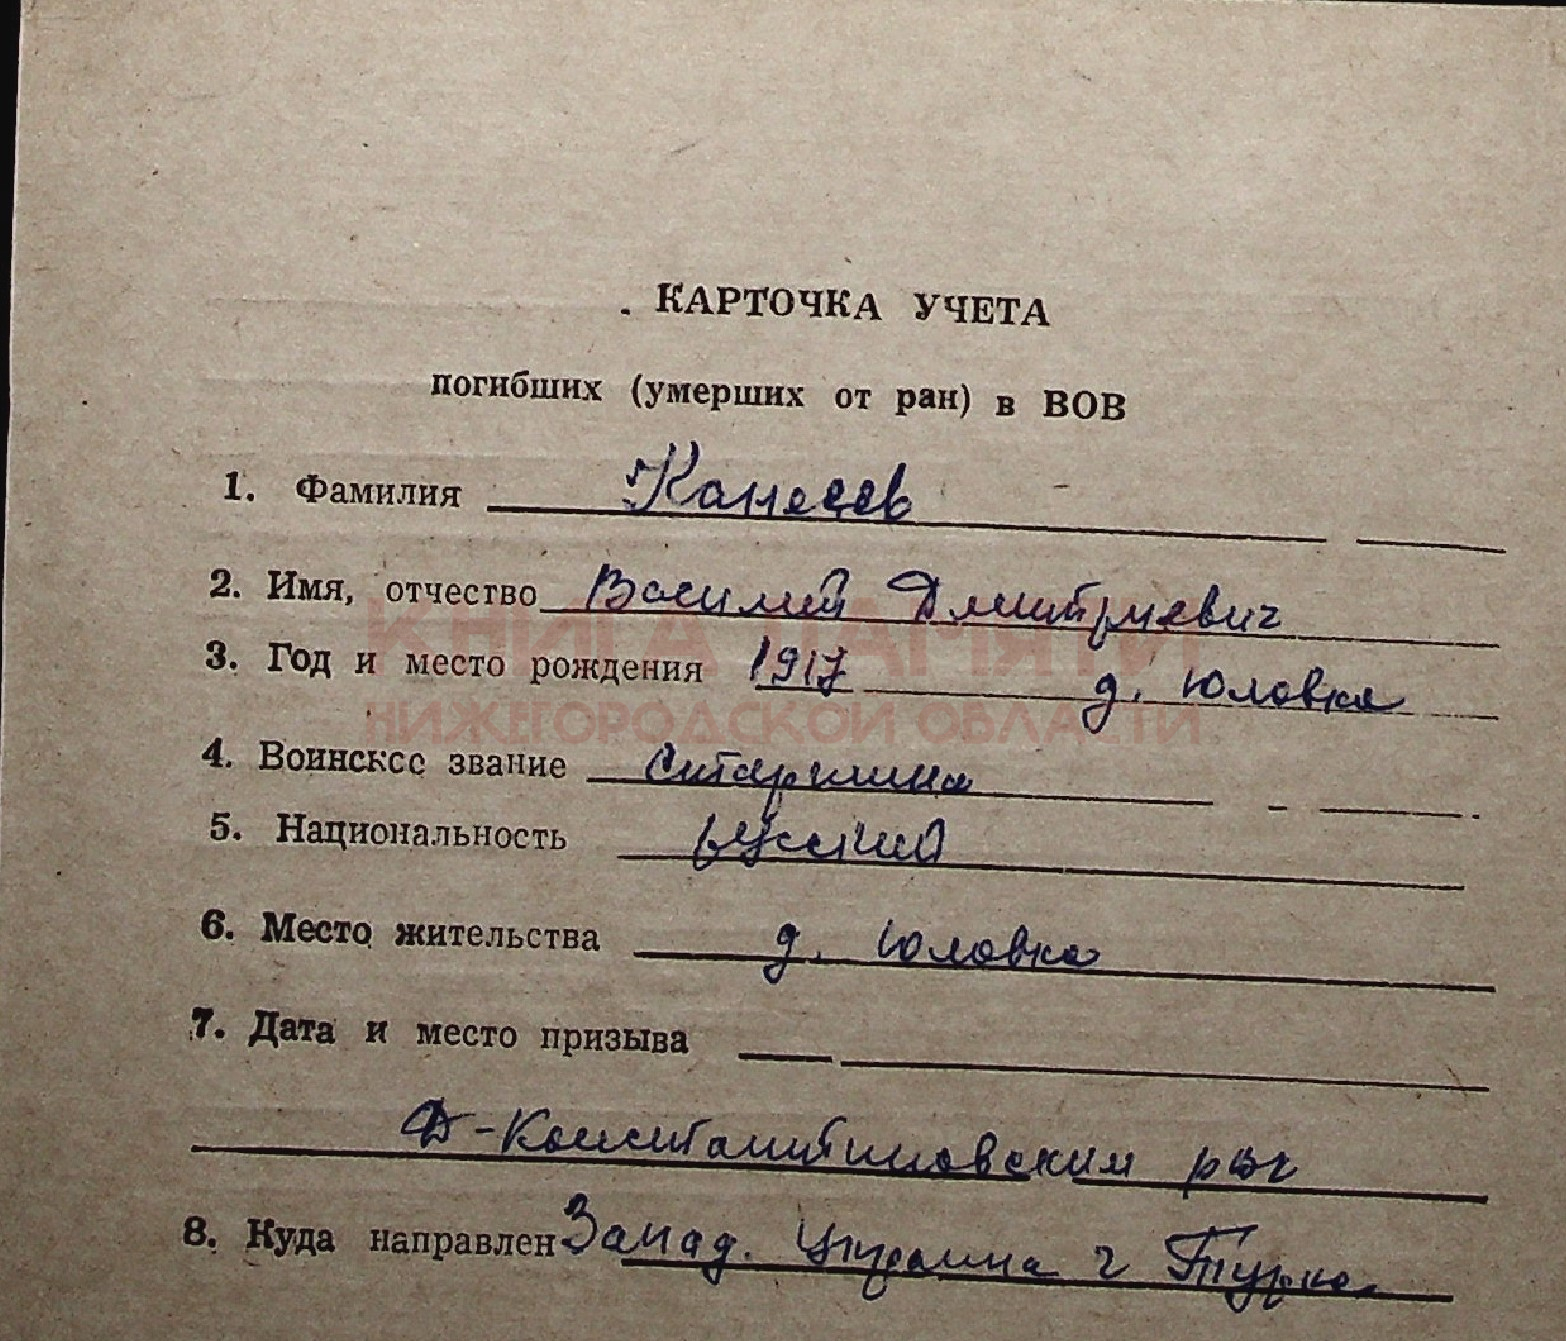 КАРТОЧКА УЧЕТА
погибших (умерших от ран) в ВОВ
1. Фамилия Канесев
2. Имя, отчество Василий Дмитриевич
КНИГА ПАМЯТИ
3. Год и место рождения 1917 д. Юловка
НИЖЕГОРОДСКОЙ ОБЛАСТИ
4. Воинское звание Старшина
5. Национальность русский
6. Место жительства д. Юловка
7. Дата и место призыва
Д-Константиновским рвк
8. Куда направлен Запад. Украина г Турка.